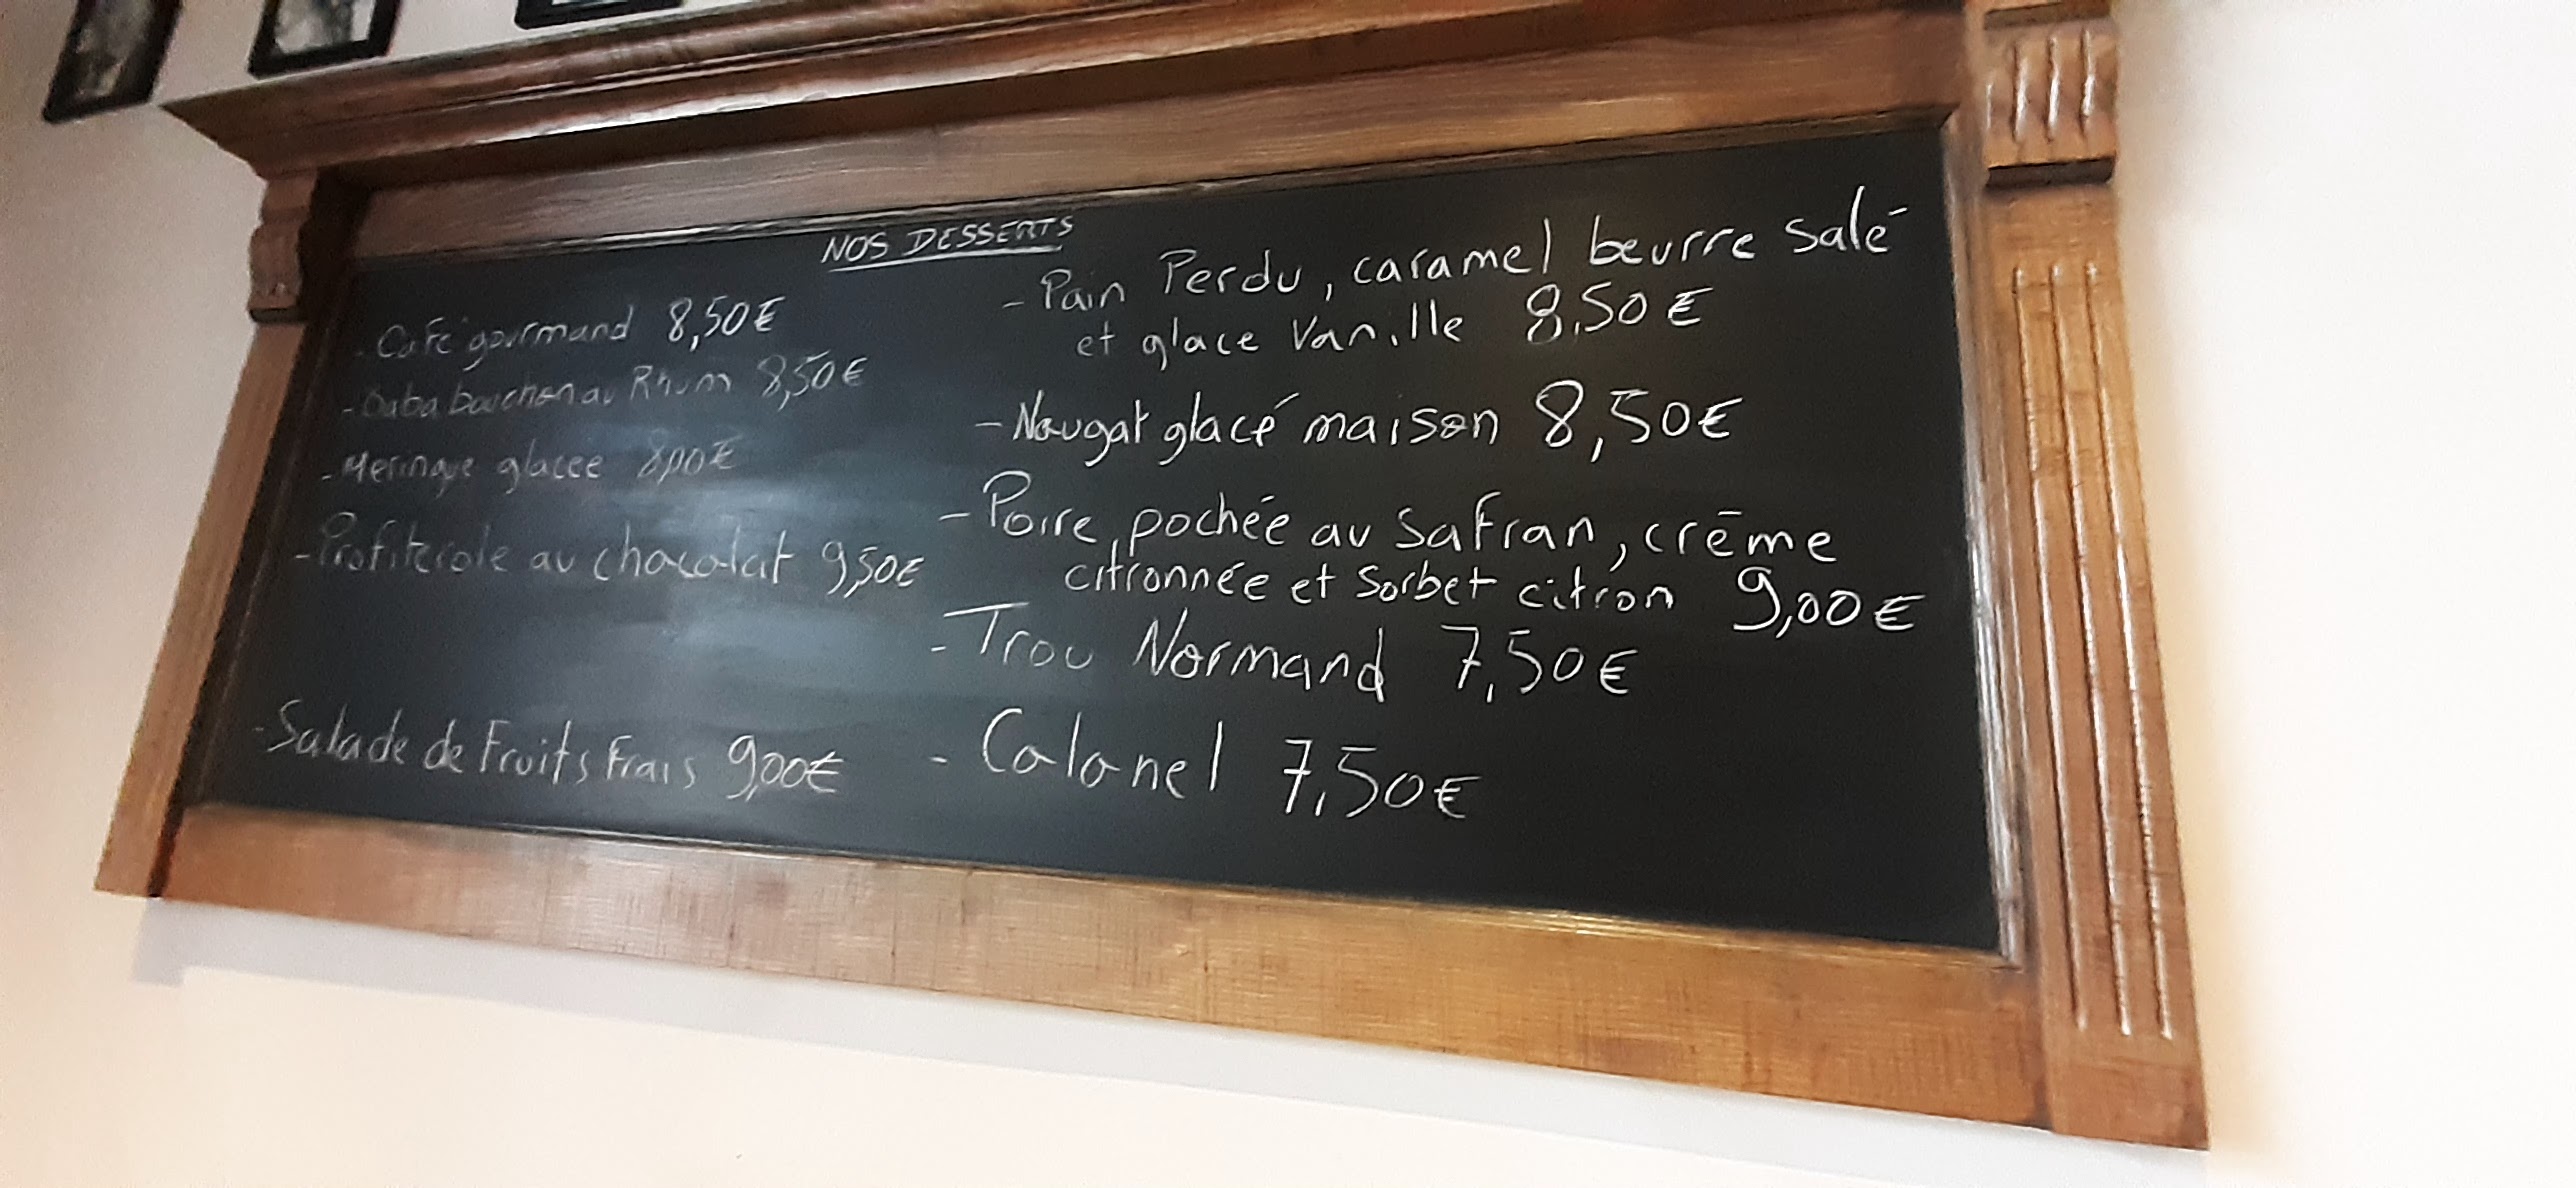 NOS DESSERTS
- Café gourmand 8,50€
- Baba bouchon au Rhum 8,50€
- Meringue glacée 8,00€
- Profiterole au chocolat 9,50€
- Salade de Fruits Frais 9,00€
- Pain Perdu, caramel beurre salé
et glace Vanille 8,50€
- Nougat glacé maison 8,50€
- Poire, pochée au Safran, crème
citronnée et Sorbet citron 9,00€
- Trou Normand 7,50€
- Colonel 7,50€